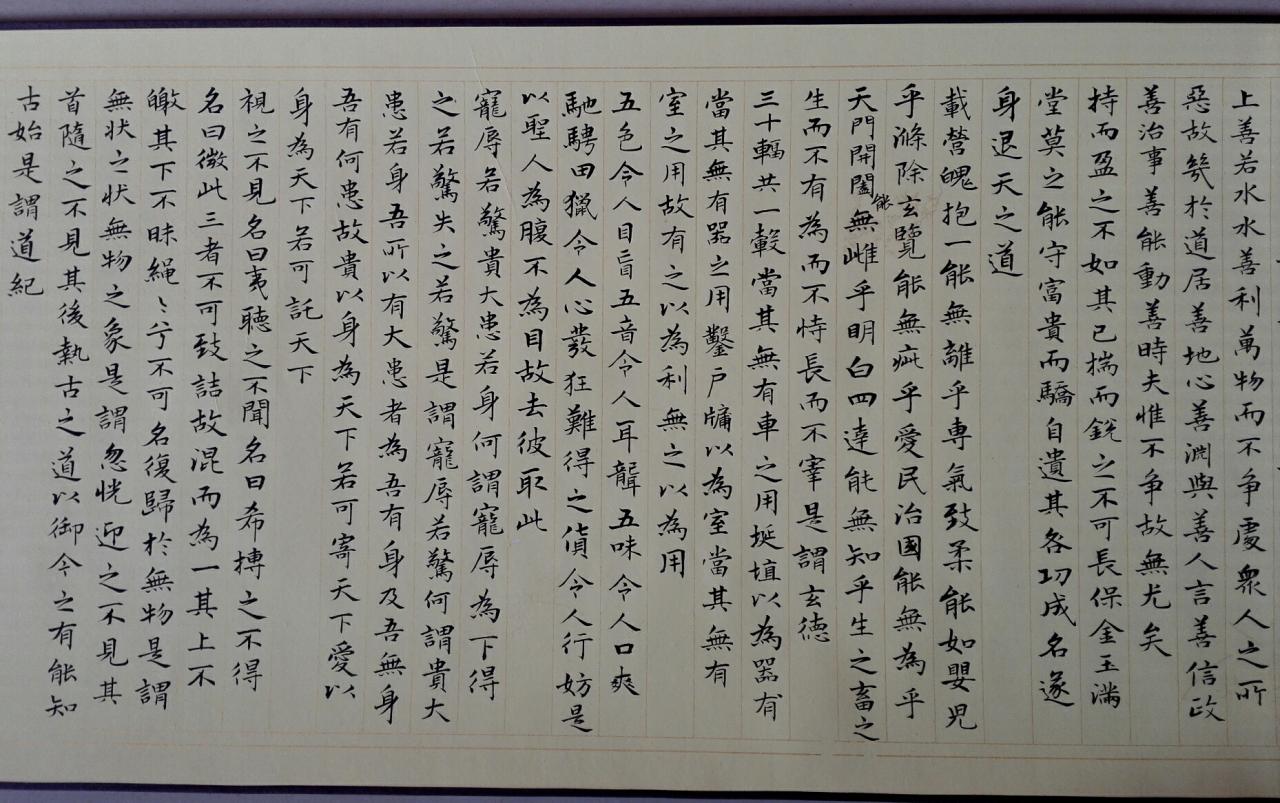 上善若水水善利萬物而不争處衆人之所
惡故㡬於道居善地心善淵與善人言善信政
善治事善能動善時夫惟不争故無尤矣
持而盈之不如其已揣而銳之不可長保金玉滿
堂莫之能守富貴而驕自遺其咎功成名遂
身退天之道
載營魄抱一能無離乎專氣致柔能如嬰兒
乎滌除玄覽能無疵乎愛民治國能無為乎
天門開闔能無雌乎明白四達能無知乎生之畜之
生而不有為而不恃長而不宰是謂玄德
三十輻共一轂當其無有車之用埏埴以為器有
當其無有器之用鑿戶牖以為室當其無有
室之用故有之以為利無之以為用
五色令人目盲五音令人耳聾五味令人口爽
馳騁田獵令人心發狂難得之貨令人行妨是
以聖人為腹不為目故去彼取此
寵辱若驚貴大患若身何謂寵辱為下得
之若驚失之若驚是謂寵辱若驚何謂貴大
患若身吾所以有大患者為吾有身及吾無身
吾有何患故貴以身為天下若可寄天下愛以
身為天下若可託天下
視之不見名曰夷聽之不聞名曰希搏之不得
名曰微此三者不可致詰故混而為一其上不
皦其下不昧繩〻兮不可名復歸於無物是謂
無状之状無物之象是謂忽恍迎之不見其
首隨之不見其後執古之道以御今之有能知
古始是謂道紀